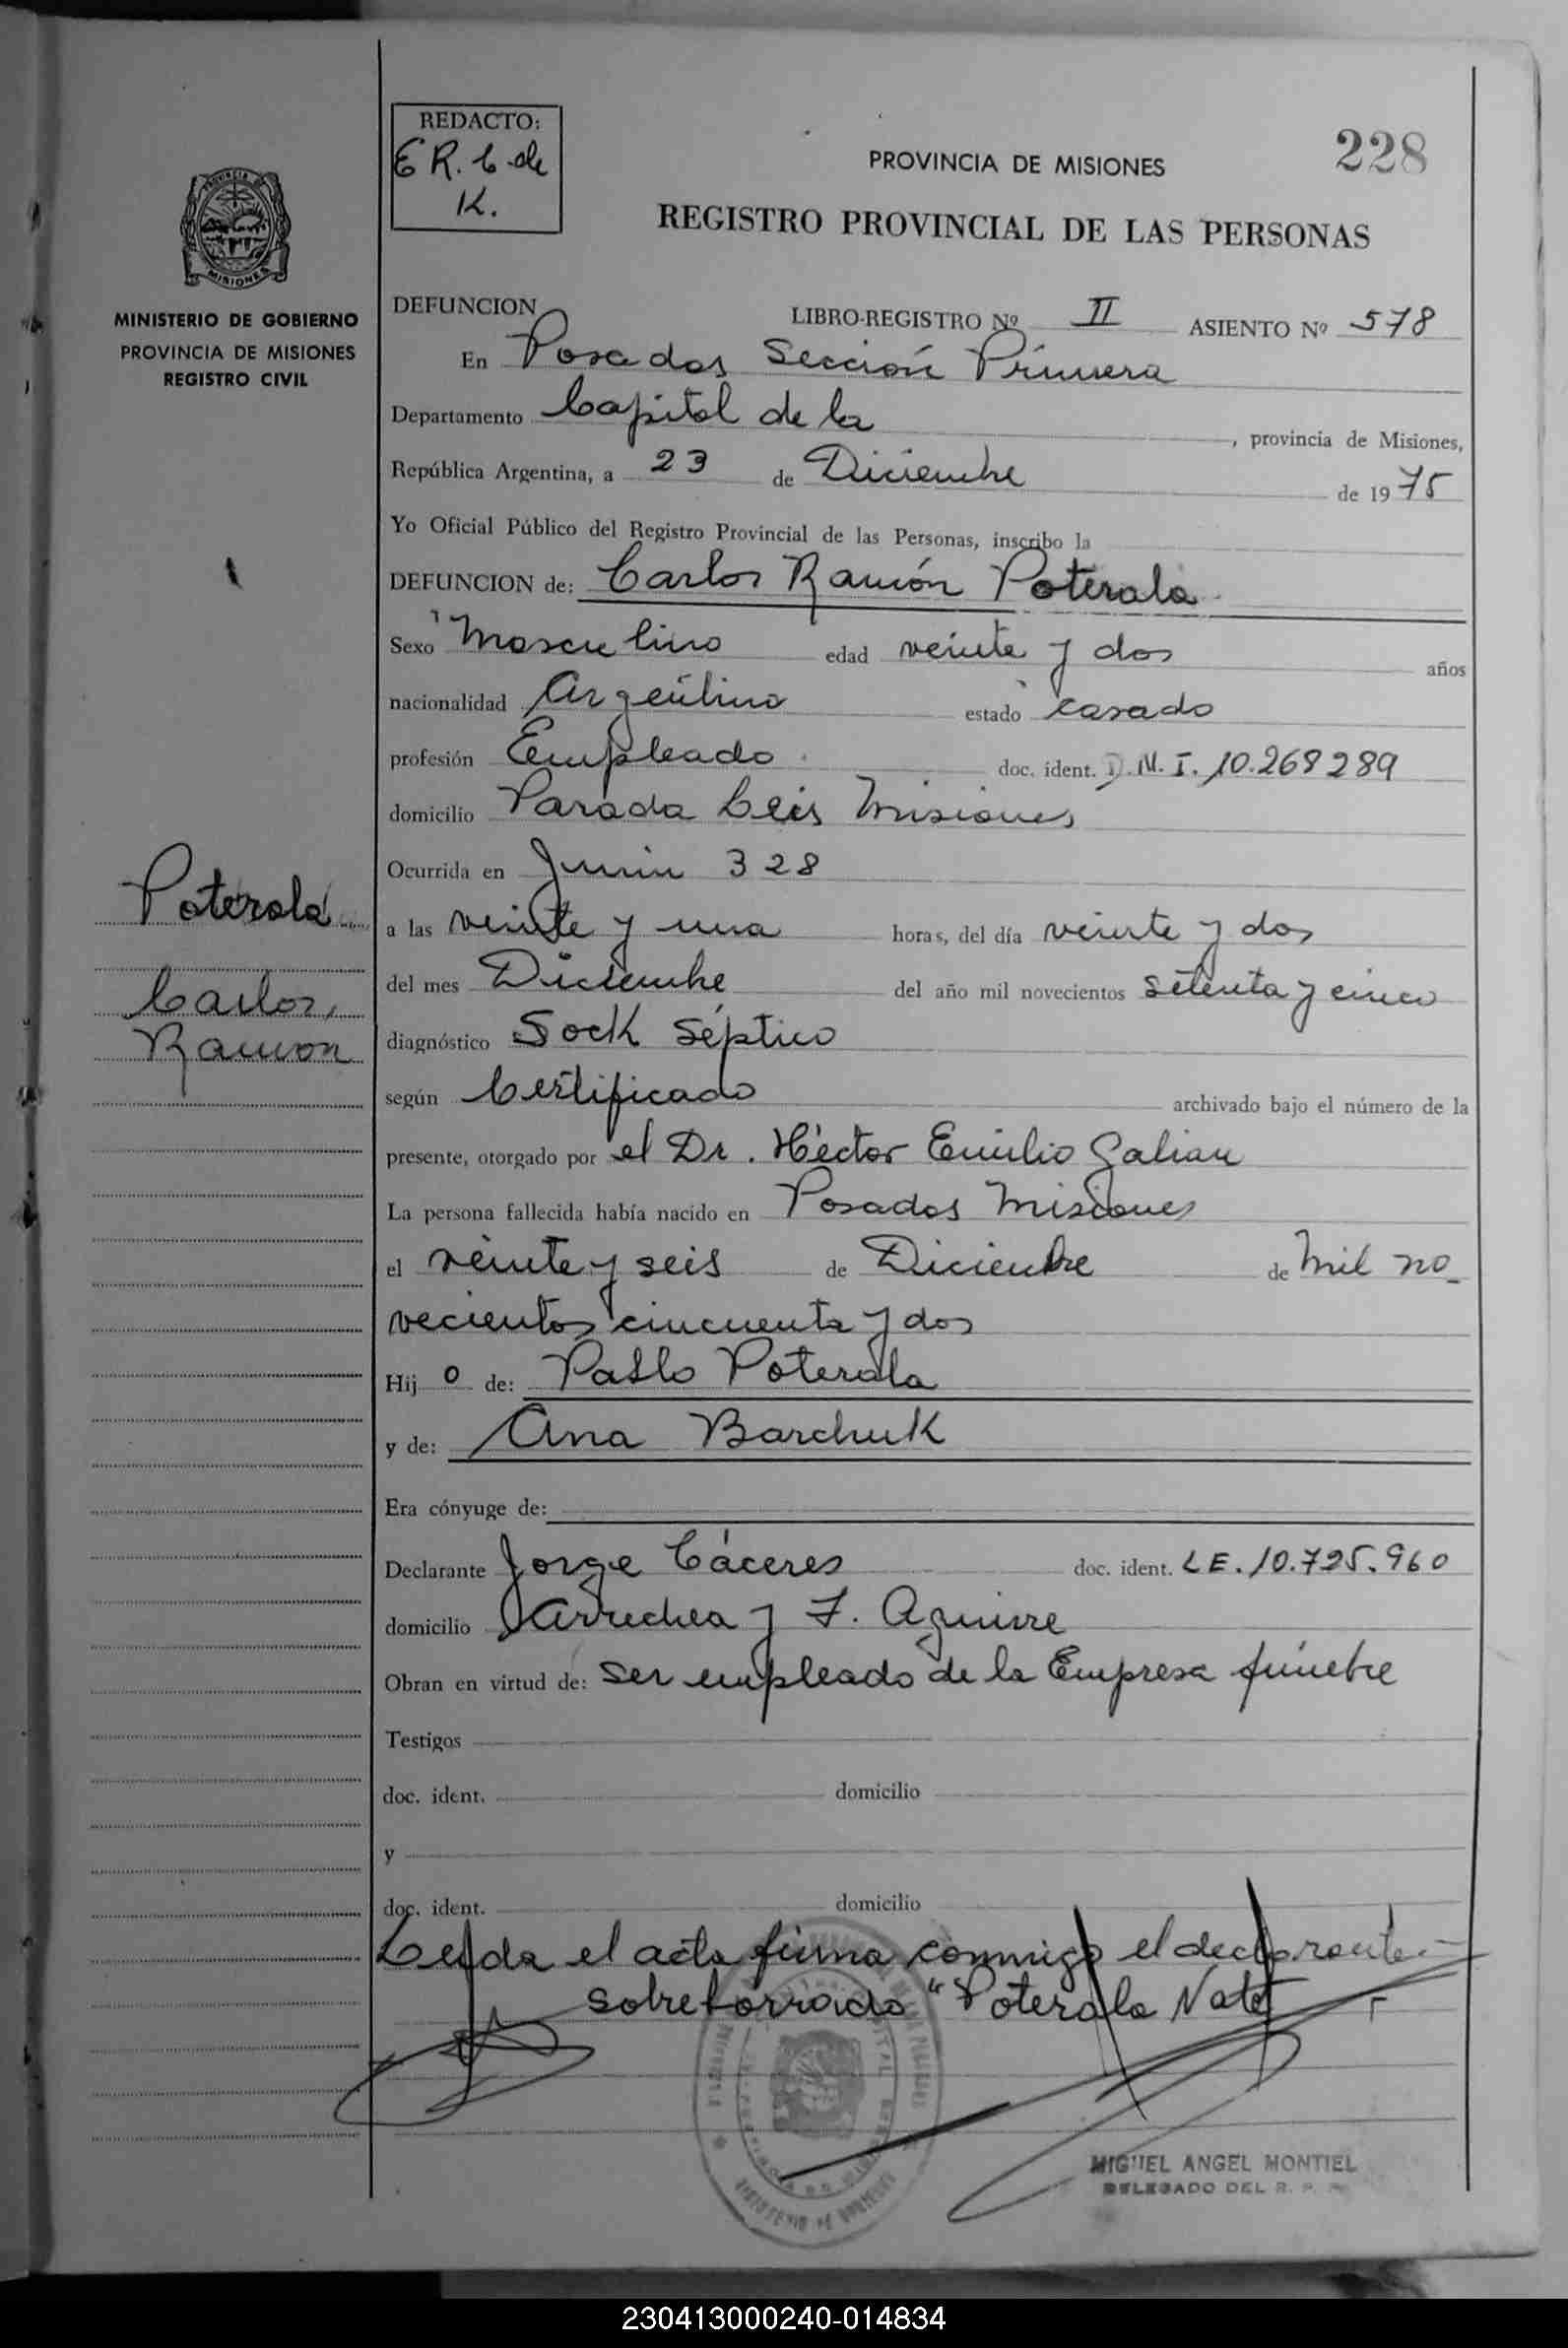 REDACTO:
E R. C de
K.
228
PROVINCIA DE MISIONES
REGISTRO PROVINCIAL DE LAS PERSONAS
PROVINCIA DE
MISIONES
MINISTERIO DE GOBIERNO
PROVINCIA DE MISIONES
REGISTRO CIVIL
DEFUNCION LIBRO-REGISTRO Nº II ASIENTO Nº 578
En Posadas Sección Primera
Departamento Capital de la , provincia de Misiones,
República Argentina, a 23 de Diciembre de 1975
Yo Oficial Público del Registro Provincial de las Personas, inscribo la
DEFUNCION de: Carlos Ramón Poterala
Sexo Masculino edad veinte y dos años
nacionalidad Argentino estado casado
profesión Empleado doc. ident. D.N.I. 10.268289
domicilio Parada Leis Misiones
Ocurrida en Junin 328
Poterala
Carlos,
Ramon
a las veinte y una horas, del día veinte y dos
del mes Diciembre del año mil novecientos setenta y cinco
diagnóstico Sock séptico
según Certificado archivado bajo el número de la
presente, otorgado por el Dr. Héctor Emilio Galian
La persona fallecida había nacido en Posadas Misiones
el veinte y seis de Diciembre de Mil no_
vecientos cincuenta y dos
Hij o de: Pablo Poterala
y de: Ana Barchuk
Era cónyuge de:
Declarante Jorge Cáceres doc. ident. LE. 10.725.960
domicilio Arrechea y F. Aguirre
Obran en virtud de: ser empleado de la Empresa fúnebre
Testigos
doc. ident. domicilio
y
doc. ident. domicilio
Leida el acta firma conmigo el declarante-
sobreborrado "Poterala Vate
MIGUEL ANGEL MONTIEL
DELEGADO DEL R. P.
230413000240-014834